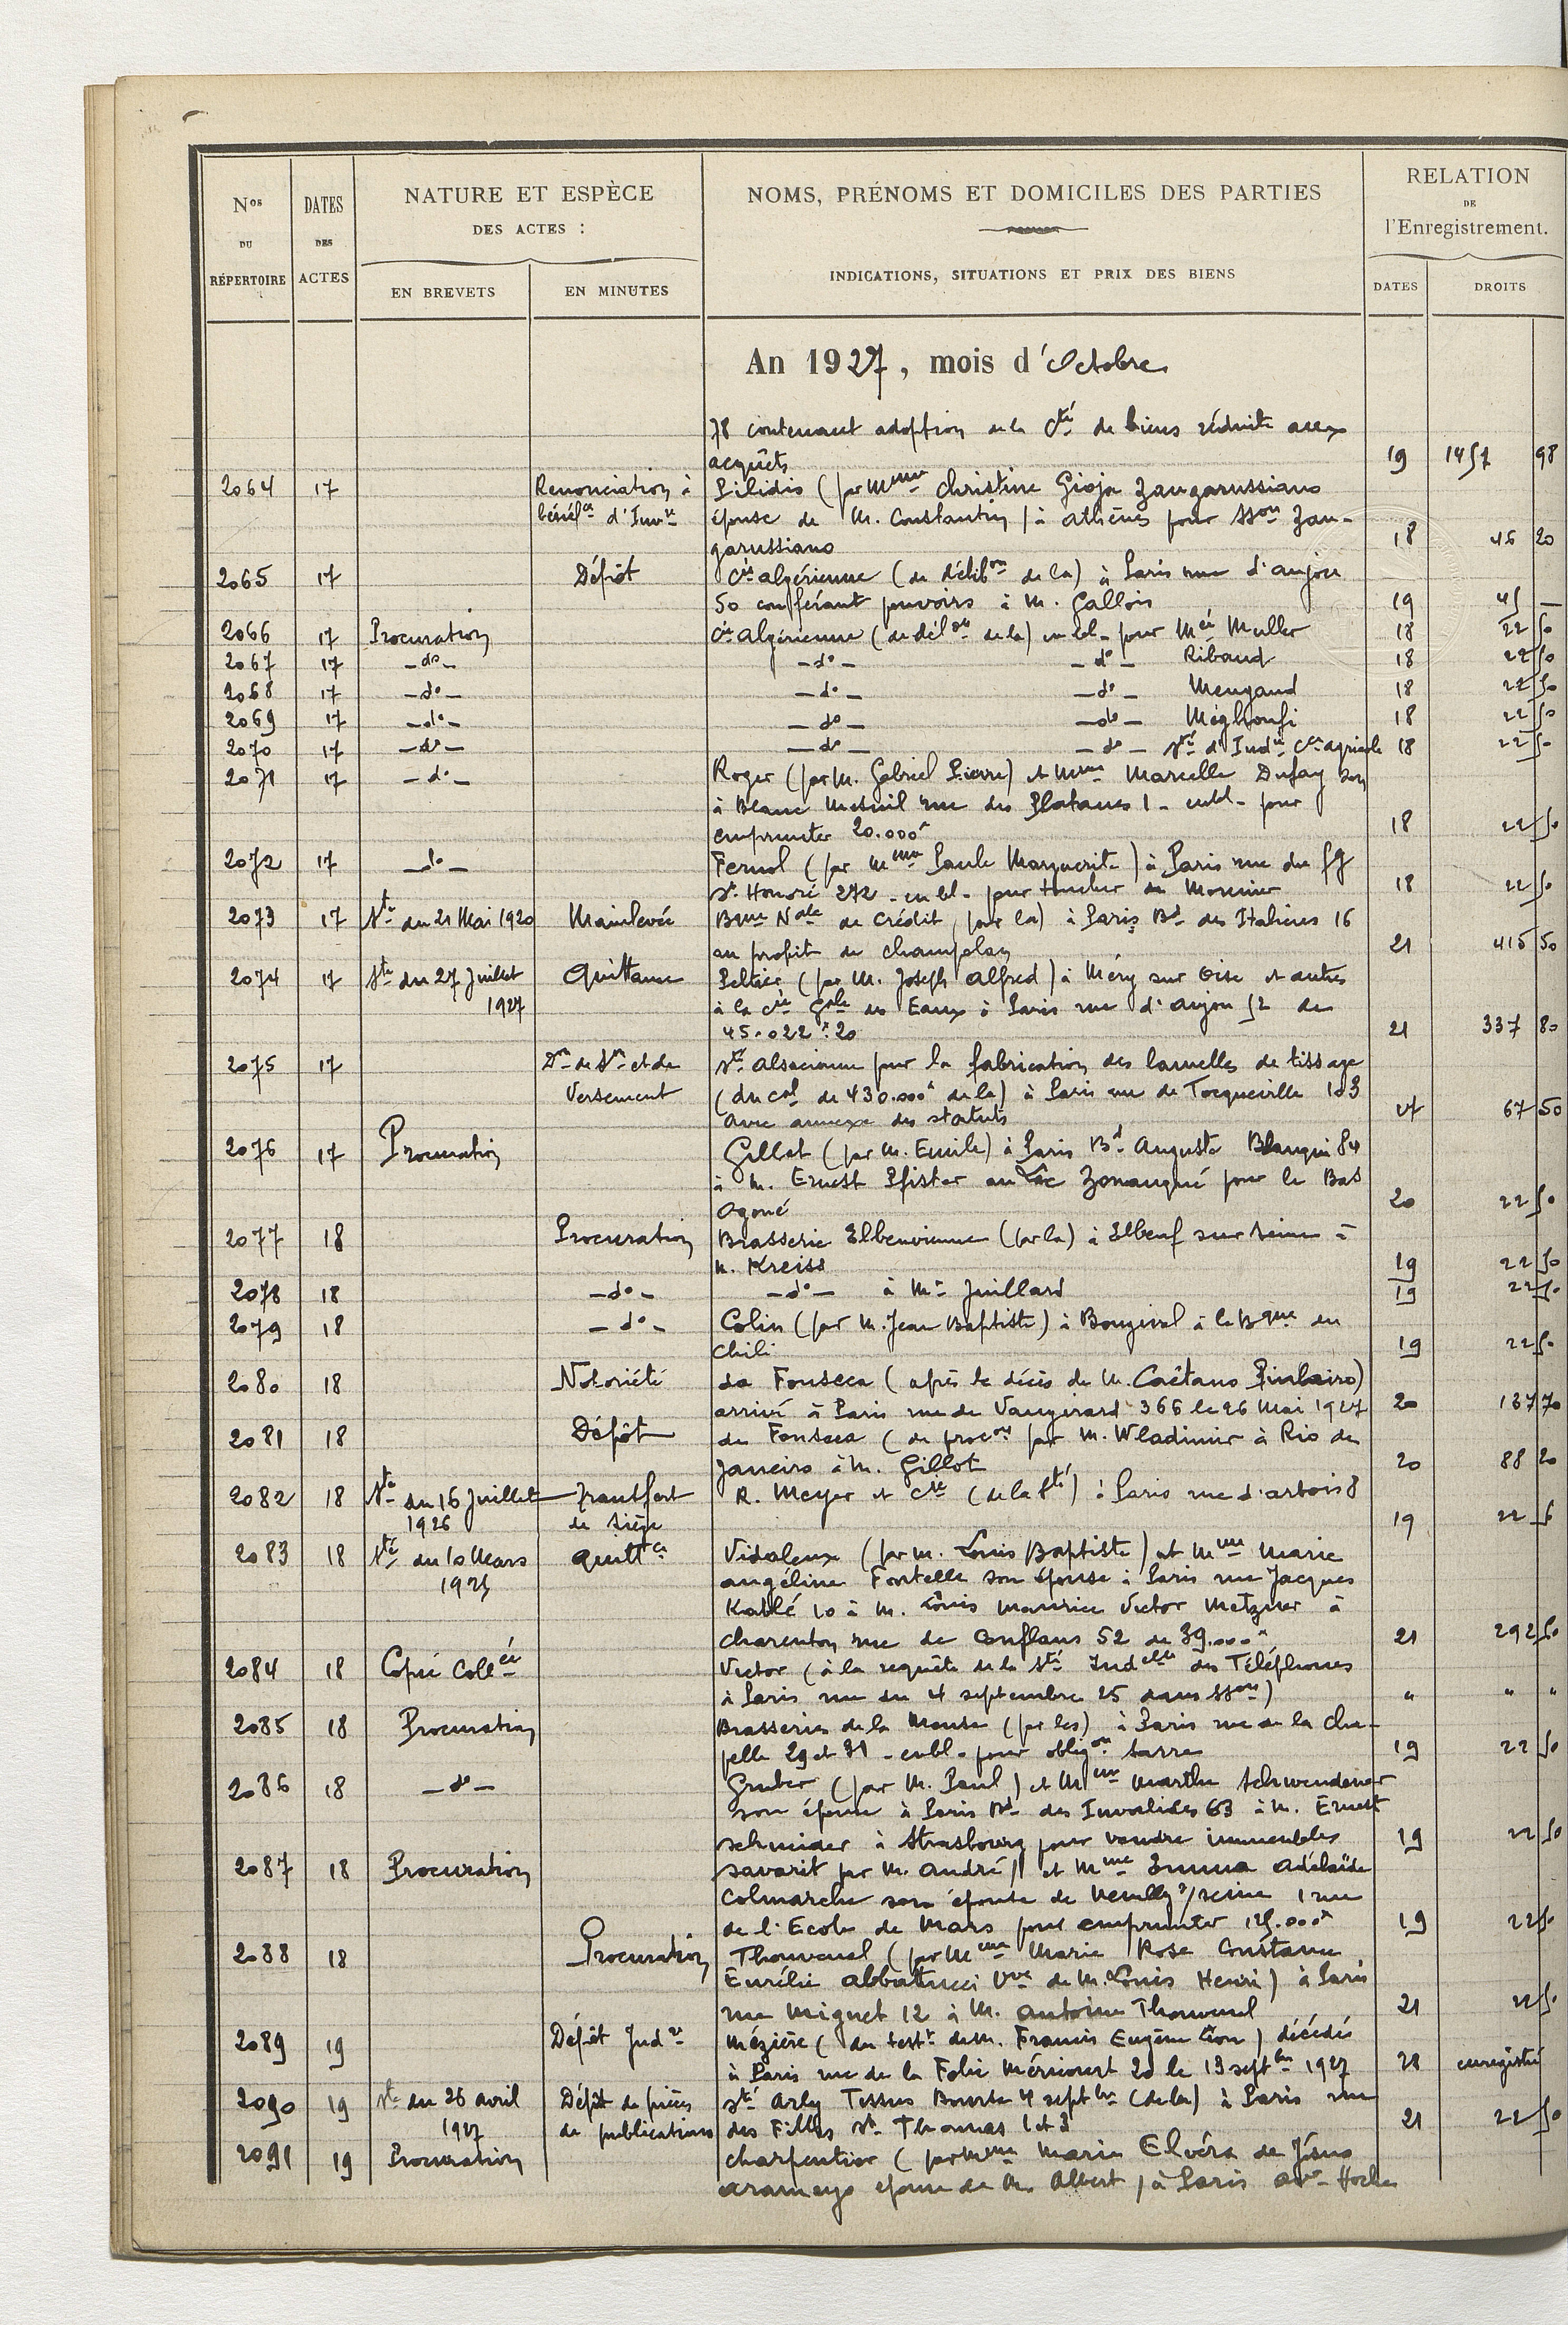 Nos DU RÉPERTOIRE
DATES DES ACTES
NATURE ET ESPÈCE DES ACTES :
EN BREVETS
EN MINUTES
NOMS, PRÉNOMS ET DOMICILES DES PARTIES
INDICATIONS, SITUATIONS ET PRIX DES BIENS
RELATION DE l'Enregistrement.
DATES
DROITS
An 1927, mois d'Octobre
78 contenant adoption de la Cté de biens réduite aux
acquêts 19 1457 98
2064 17 Renonciation à Pilidis (par Mme Christine Gioja Zangarussiano
bénéfce d'Invre épouse de M. Constantin) à Athènes pour sson Zan-
garussiano 18 45 20
2065 17 Dépôt Cie algérienne (de délibon de la) à Paris rue d'anjou
50 conférant pouvoirs à M. Gallois 19 45 —
2066 17 Procuration Cie Algérienne (de délon de la) en bl- pour Mel Muller 18 22 50
2067 17 -do- -do- -do- Ribaud 18 22 50
2068 17 -do- -do- -do- Mengaud 18 22 50
2069 17 -do- -do- -do- Méghoufi 18 22 50
2070 17 -do- -do- -do- Sté d'Indle Cce agricole 18 22 50
2071 17 -do- Roger (par M. Gabriel Pierre) et Mme Marcelle Dufay son
à Blanc Mesnil rue des Platanes 1 - enbl - pour
emprunter 20.000f 18 22 50
2072 17 -do- Fernol (par Mme Paule Marguerite) à Paris rue du fg
St Honoré 272 - en bl - pour toucher de Mounier 18 22 50
2073 17 Ste du 21 Mai 1920 Mainlevée Bque Nale de Crédit (par la) à Paris Bd des Italiens 16
au profit de Champelay 21 415 50
2074 17 Ste du 27 Juillet Quittance Peltier (par M. Joseph Alfred) à Méry sur Oise et autres
1927 à la Cie Gale des Eaux à Paris rue d'Anjou 52 de
45.022f 20 21 337 80
2075 17 Don de Son et de Sté alsacienne pour la fabrication des lamelles de tissage
Versement (du cal de 430.000f de la) à Paris rue de Tocqueville 103
avec annexe des statuts 67 50
2076 17 Procuration Gillet (par M. Emile) à Paris Bd Auguste Blanqui 84
à M. Ernest Pfister au Lac Zonangué pour le Bas
Ogoué 20 22 50
2077 18 Procuration Brasserie Elbeuvienne (par la) à Elbeuf sur Seine à
M. Kreiss 19 22 50
2078 18 -do- -do- à Me Juillard 19 22 50
2079 18 -do- Colin (par M. Jean Baptiste) à Bougival à la Bque du
Chili 19 22 50
2080 18 Notoriété da Fonseca (après le décès de M. Caëtano Pinheiro)
arrivé à Paris rue de Vaugirard 366 le 26 Mai 1927 20 137 70
2081 18 Dépôt da Fonseca (de procon par M. Wladimir à Rio de
Janeiro à M. Gillot 20 88 20
2082 18 Ste du 16 Juillet Transfert R. Meyer et Cie (de la Sté) à Paris rue d'artois 8
1926 de Siège 19 22 6
2083 18 Ste du 10 Mars quittce Vidaleux (par M. Louis Baptiste) et Mme Marie
1925 angéline Fontelle son épouse à Paris rue Jacques
Kablé 10 à M. Louis Maurice Victor Metzger à
Charenton rue de Conflans 52 de 39.000f 21 292 50
2084 18 Copie Collée Victor (à la requête de la Sté Indelle des Téléphones
à Paris rue du 4 septembre 25 dans sson) " " "
2085 18 Procuration Brasseries de la Meuse (par les) à Paris rue de la Cha-
pelle 29 et 31 - enbl - pour obligon Sarre 19 22 50
2086 18 -do- Gruber (par M. Paul) et Mme Marthe Schwendener
son épouse à Paris Bd des Invalides 63 à M. Ernest
Schneider à Strasbourg pour vendre immeubles 19 22 50
2087 18 Procuration Savarit par M. André) et Mme Emma Adélaïde
Colmarche son épouse de Neuilly s/seine 1 rue
de l'Ecole de Mars pour emprunter 125.000f 19 22 50
2088 18 Procuration Thouvenel (par Mme Marie Rose Constance
Eurélie Abbatucci Vve de M. Louis Henri) à Paris
rue Mignet 12 à M. Antoine Thouvenel 21 22 50
2089 19 Dépôt Judre Mézière (du testt de M. Francis Eugène Léon) décédé
à Paris rue de la Folie Méricourt 20 le 13 septbre 1927 28 enregistré
2090 19 Ste du 26 avril Dépôt de pièces Sté Arly Tissus Bourse 4 septbre (de la) à Paris rue
1927 de publications des Filles St Thomas 1 et 3 21 22 50
2091 19 Procuration Charpentier (par Mme Marie Elvéra de Jésus
aramayo épouse de M. Albert) à Paris ave Hoche